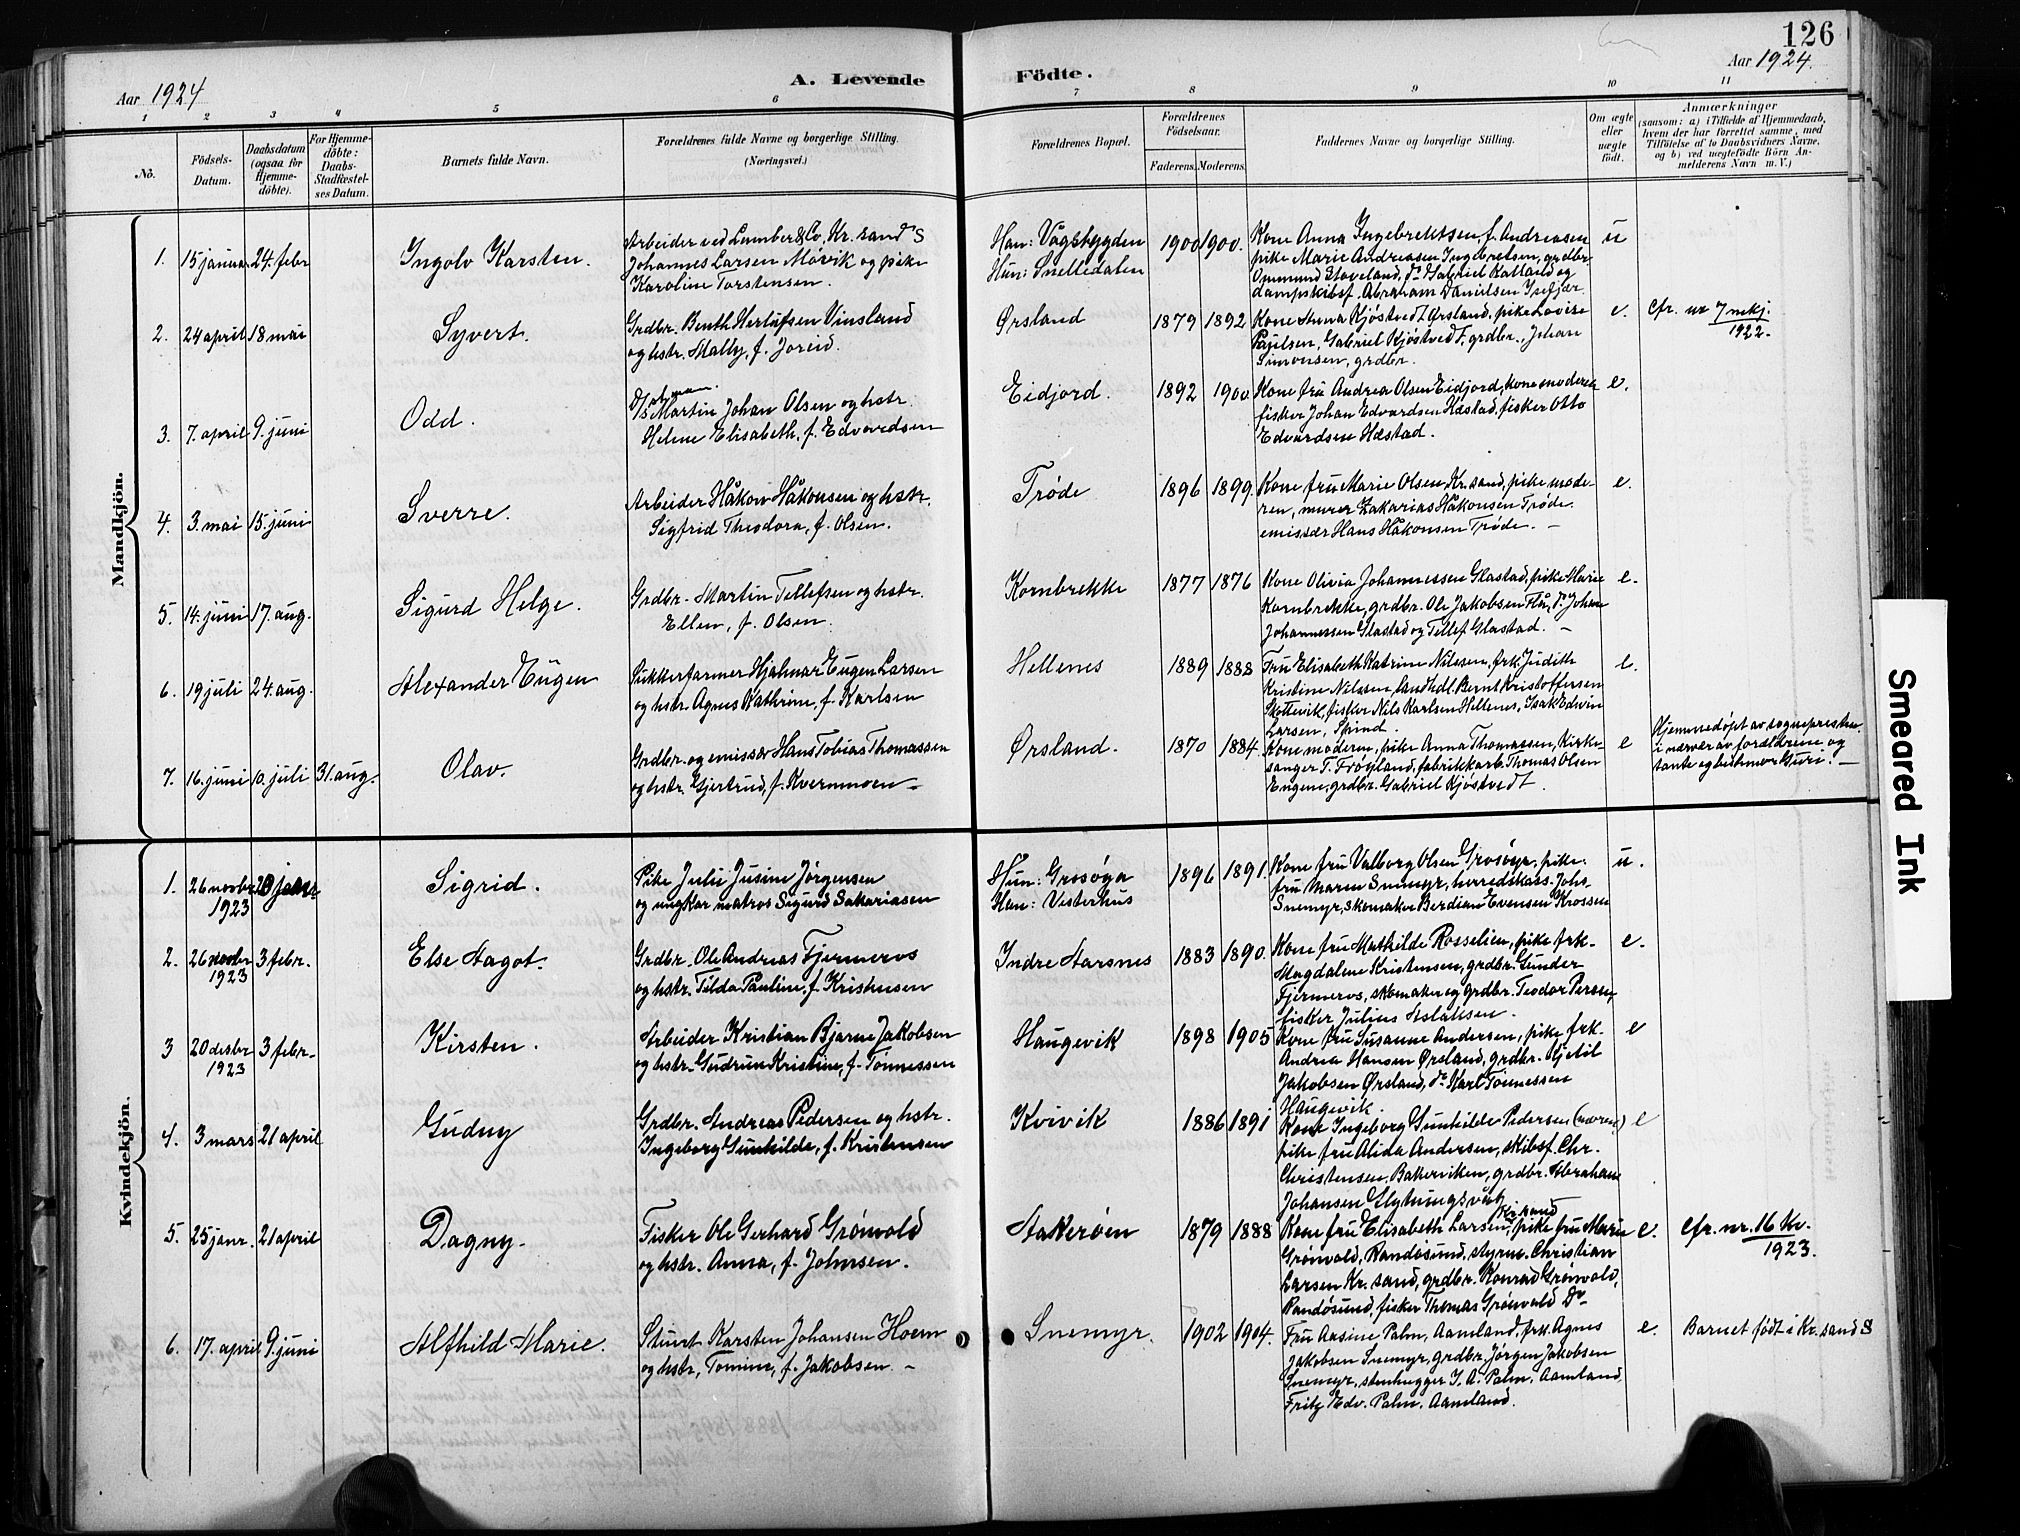 126
Aar 1924
A. Levende
Födte.
Aar 1924.
1 2 3 4 5 6 7 8 9 10 11
No.
Födsels-
Datum.
Daabsdatum
(ogsaa for
Hjemme-
döbte).
For Hjemme-
döbte:
Daabs-
Stadfæstel-
ses Datum.
Barnets fulde Navn.
Forældrenes fulde Navne og borgerlige Stilling.
(Næringsvei.)
Forældrenes Bopæl.
Forældrenes
Födselsaar.
Faderens. Moderens.
Faddernes Navne og borgerlige Stilling.
Om ægte
eller
uægte
født.
Anmærkninger
(saasom: a) i Tilfælde af Hjemmedaab,
hvem der har forrettet samme, med
Tilföielse af to Daabsvidners Navne,
og b) ved uægtefödte Börn An-
melderens Navn m. V.)
Mandkjön.
1. 15 januar 24. febr Ingolv Karsten.
Arbeider ved Lumber & Co, Kr. sand S
Johannes Larsen Møvik og pike
Karoline Torstensen.
Han: Vågsbygden
Hun: Snelledalen
1900 1900.
Kone Anna Ingebretsen, f. Andreasen
pike Marie Andreasen Ingebretsen, grdbr.
Ommund Staveland, do Gabriel
dampskibsf. Abraham Danielsen
u
2. 24 april 18 mai Syvert.
Grdbr. Benth Herlufsen Vinsland
og hstr. Mally, f. Joreid.
Ørsland
1879 1892
Kone Anna Kjøstvedt Ørsland, pike Lovise
Paulsen, Gabriel Kjøstvedt, grdbr., Johan
Simonsen, grdbr.
e. cfr. nr 7 mkj.
1922.
3. 7. april 9. juni Odd.
D/s Martin Johan Olsen og hstr.
Helene Elisabeth, f. Edvardsen
Eidjord.
1892 1900
Kone fru Andrea Olsen Eidjord, kone moderen
fisker Johan Edvardsen Hæstad, fisker Otto
Edvardsen Hæstad.
e.
4. 3. mai 15. juni Sverre.
Arbeider Håkon Håkonsen og hstr.
Sigfrid Theodora, f. Olsen.
Trøde
1896 1899
Kone fru Marie Olsen Kr. sand, pike mode-
ren, murer Zakarias Håkonsen Trøde.
emissær Hans Håkonsen Trøde. -
e.
5. 14. juni 17. aug. Sigurd Helge.
Grdbr. Martin Tellefsen og hstr.
Ellen, f. Olsen.
Kornbrekke
1877 1876
Kone Olivia Johannessen Glastad, pike Marie
Kornbrekke, grdbr. Ole Jakobsen Flå, do Johan
Johannessen Glastad og Tellef Glastad. -
e.
6. 19 juli 24. aug. Alexander Eugen
Sukkerfarmer Hjalmar Eugen Larsen
og hstr. Agnes Kathrine, f. Karlsen
Hellenes
1889 1888
Fru Elisabeth Katrine Nilssen, frk. Judith
Kristine Nilssen, landhdl. Bernt Kristoffersen
Skottevik, fisker Nils Karlsen Hellenes, Isak Edvin
Larsen, Spind.
e.
7. 16. juni 10. juli 31. aug. Olav.
Grdbr. og emissær Hans Tobias Thomassen
og hstr. Gjertrud, f. Kvernmoen -
Ørsland.
1870 1884
Kone moderen, pike Anna Thomassen, Kirke-
sanger T. Frøysland, fabrikkarb. Thomas Olsen
Engene, grdbr. Gabriel Kjøstvedt.
e
Hjemmedøpt av sogneprsten
i nærvær av forældrene og
tante og bestemor Guri. -
Kvindekjön.
1. 26 novbr 20 janr
1923
Sigrid.
Pike Julie Jusine Jørgensen
og ungkar matros Sigurd Sakariasen
Hun: Grosøya
Han: Vesterhus
1896 1891.
Kone fru Valborg Olsen Grosøya, pike
fru Maren Snemyr, herredskass. Johs.
Snemyr, skomaker Berdian Evensen Krossen
u.
2. 26 novbr 3 febr.
1923
Else Aagot.
Grdbr. Ole Andreas Fjermeros
og hstr. Tilda Pauline, f. Kristensen
Indre Aarsnes
1883 1890.
Kone fru Mathilde Rosselien, pike frk.
Magdalene Kristensen, grdbr. Gunder
Fjermeros, skomaker og grdbr. Teodor Persen,
fisker Julius Aslaksen.
e.
3 20 desbr 3 febr.
1923
Kirsten.
Arbeider Kristian Bjarne Jakobsen
og hstr. Gudrun Kristine, f. Tønnessen
Haugevik
1898 1905
Kone fru Susanne Andersen, pike frk.
Andrea Hansen Ørsland, grdbr. Kjetil
Jakobsen Ørsland, do Karl Tønnessen
Haugevik.
e
4. 3 mars 21 april Gudny
Grdbr. Andreas Pedersen og hstr.
Ingeborg Gunhilde, f. Kristensen
Kvivik
1886 1891
Kone Ingeborg Gunhilde Pedersen
pike fru Alida Andersen, skibsf. Chr.
Christensen, Bakerviken, grdbr. Abraham
Johansen
e
5. 25 janr. 21 april Dagny.
Fisker Ole Gerhard Grønvold
og hstr. Anna, f. Johnsen.
Stakerøen
1879 1888
Kone fru Elisabeth Larsen, Kr. sand, pike fru Marie
Grønvold, Randøsund, styrm. Christian
Larsen Kr. sand, grdbr. Konrad Grønvold,
Randøsund, fisker Thomas Grønvold Do
e. cfr. nr. 16 kv.
1923.
6. 17. april 9. juni Alfhild Marie.
Stuert Karsten Johansen Hoem
og hstr, Tomine, f. Jakobsen. -
Snemyr.
1902 1904.
Fru Aasine Palm, Aamland, frk. Agnes
Jakobsen Snemyr, grdbr. Jørgen Jakobsen
Snemyr, stenhugger J. A. Palm, Aamland,
Fritz Edv. Palm, Aamland.
e. Barnet født i Kr. sand S
Smeared Ink